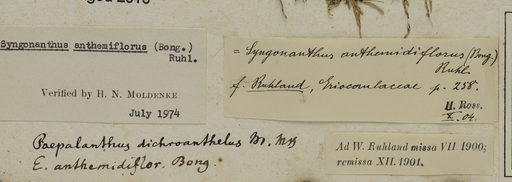 Syngonanthus anthemiflorus (Bong.)
Ruhl.
Verified by H. N. MOLDENKE
July 1974
= Syngonanthus anthemidiflorus (Bong.)
Ruhl.
f. Ruhland, Eriocaulaceae p. 258.
H. Ross.
X. 04.
Paepalanthus dichroanthelus
E. anthemidiflor. Bong.
Ad W. Ruhland missa VII. 1900;
remissa XII. 1901.